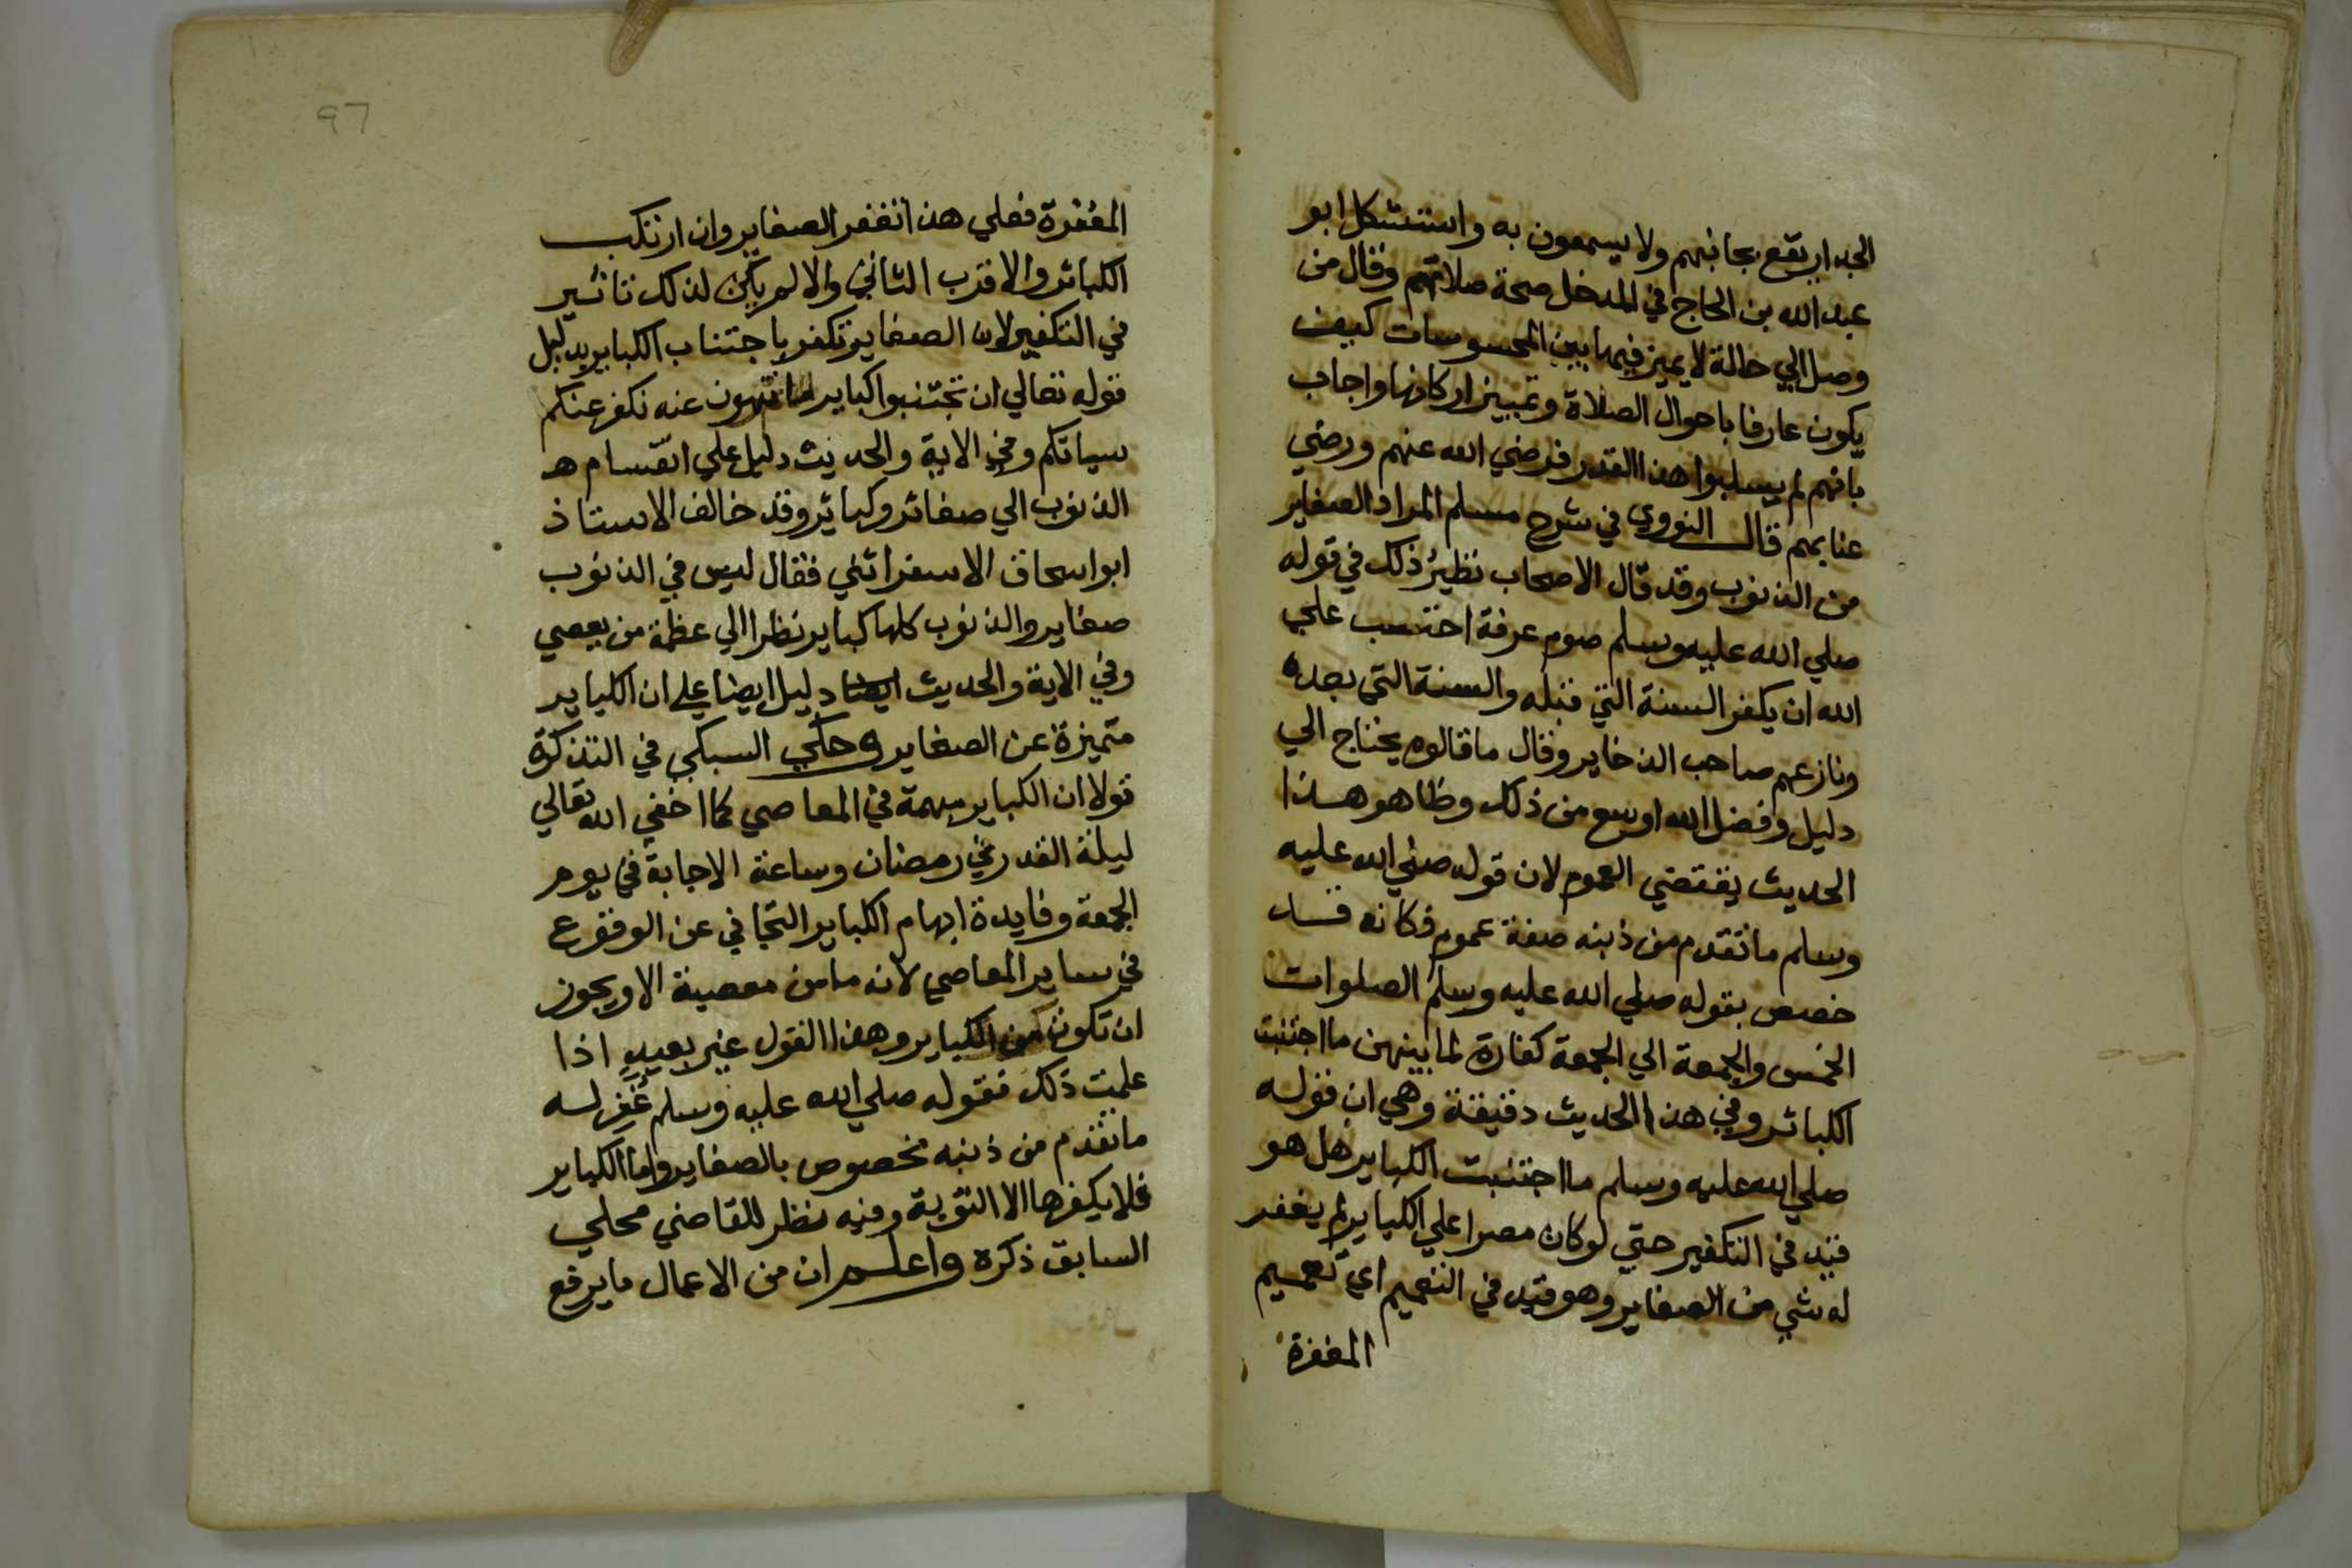 الجدار يقع بجانبهم ولا يسمعون به واستشكل ابو
عبد الله بن الحاج في المدخل صحة صلاتهم وقال من
وصل الي حالة لا يميز فيها بين المحسوسات كيف
يكون عارفا باحوال الصلاة وتمييز اركانها واجاب
بانهم لم يسلبوا هذا القدر فرضي الله عنهم ورضي
عنا بهم قال النووي في شرح مسلم المراد الصغاير
من الذنوب وقد قال الاصحاب نظير ذلك في قوله
صلي الله عليه وسلم صوم عرفة احتسب علي
الله ان يكفر السنة التي قبله والسنة التي بعده
ونازعهم صاحب الذخاير وقال ما قالوه يحتاج الي
دليل وفضل الله اوسع من ذلك وظاهر هذا
الحديث يقتضي العموم لان قوله صلي الله عليه
وسلم ما تقدم من ذنبه صفة عموم فكانه قد
خصص بقوله صلي الله عليه وسلم الصلوات
الخمس والجمعة الي الجمعة كفارة لما بينهن ما اجتنبت
الكبائر وفي هذا الحديث دقيقة وهي ان قوله
صلي الله عليه وسلم ما اجتنبت الكباير هل هو
قيد في التكفير حتي لو كان مصرا علي الكباير لم يغفر
له شي من الصغاير وهو قيد في التعميم اي تعميم
المغفرة
٩٦
المغفرة فعلي هذا تغفر الصغاير وان ارتكب
الكبائر والاقرب الثاني والا لم يكن لذلك تاثير
في التكفير لان الصغاير تكفر باجتناب الكباير بدليل
قوله تعالي ان تجتنبوا كباير ما تنهون عنه نكفر عنكم
سياتكم وفي الاية والحديث دليل علي انقسام هـ
الذنوب الي صغائر وكبائر وقد خالف الاستاذ
ابو اسحاق الاسفرائني فقال ليس في الذنوب
صغاير والذنوب كلها كباير نظرا الي عظمة من يعصي
وفي الاية والحديث ايضا دليل ايضا علي ان الكباير
متميزة عن الصغاير وحكي السبكي في التذكرة
قولا ان الكباير مبهمة في المعاصي كما اخفي الله تعالي
ليلة القدر في رمضان وساعة الاجابة في يوم
الجمعة وفايدة ابهام الكباير التجافي عن الوقوع
في ساير المعاصي لانه ما من معصية الا ويجوز
ان تكون من الكباير وهذا القول غير بعيد اذا
علمت ذلك فقوله صلي الله عليه وسلم غفر له
ما تقدم من ذنبه مخصوص بالصغاير واما الكباير
فلا يكفرها الا التوبة وفيه نظر للقاضي محلي
السابق ذكره واعلم ان من الاعمال ما يرفع